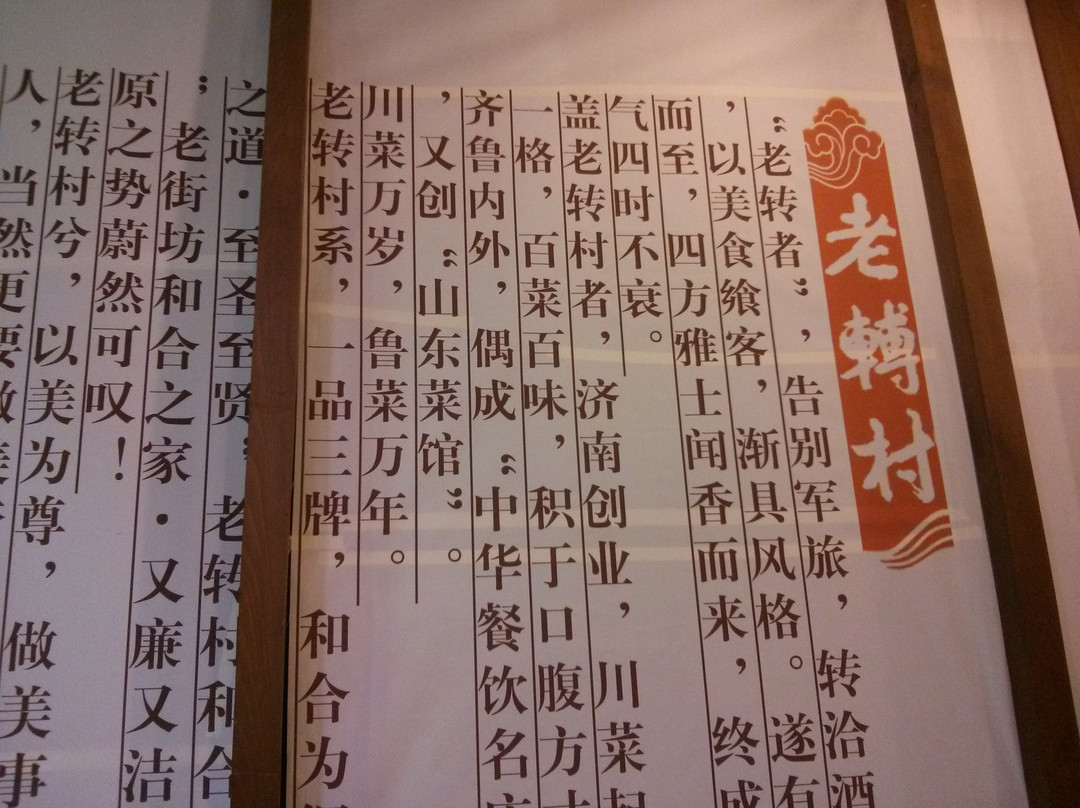 老轉村
“老转者”,告别军旅,转洽酒
,以美食飨客,渐具风格。遂有
而至,四方雅士闻香而来,终成
气四时不衰。
盖老转村者,济南创业,川菜起
一格,百菜百味,积于口腹方寸
齐鲁内外,偶成“中华餐饮名店
,又创“山东菜馆”。
川菜万岁,鲁菜万年。
老转村系,一品三牌,和合为
之道·至圣至贤,老转村和合
;老街坊和合之家·又廉又洁
原之势蔚然可叹!
老转村兮,以美为尊,做美事
人,当然更要做